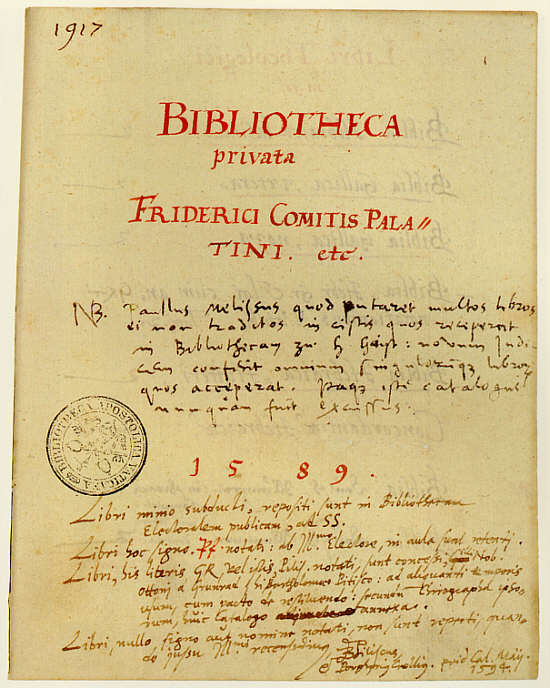 1917
BIBLIOTHECA
privata
FRIDERICI COMITIS PALA//
TINI. etc.
NB. Paullus Melissus quod putaret multos libros
ei non traditos in cistis quos receperat
in Bibliothecam zu H Geist: novum Indi
cem confecit omnium singulorumq; librorum
quos acceperat. iste catalogus
nunquam fuit excussus.
BIBLIOTHECA APOSTOLICA VATICANA
1589.
Libri minio subducti, repositi sunt in Bibliothecam
Electoralem publicam, ad SS.
Libri hoc signo. Pf notati: ab Ill.mo Electore, in aula sunt retenti.
Libri, his literis GR, vel istis, Pitis. notati, sunt concessi Nob.
Ottoni a Grunrad & Bartholomeo Pitisco: ad aliquanti temporis
usum, cum pacto de restituendo: secundum Chirographa ipso-
rum, huic Catalogo annexa.
Libri, nullo signo aut nomine notati, non sunt reperti, quan-
do jussu Ill.mi recensebimus
prid. Cal. Maij.
1594.